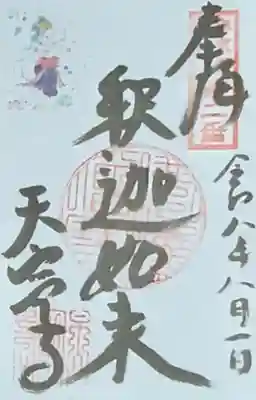 奉拝
令八年八月一日
釈迦如来
天寧寺